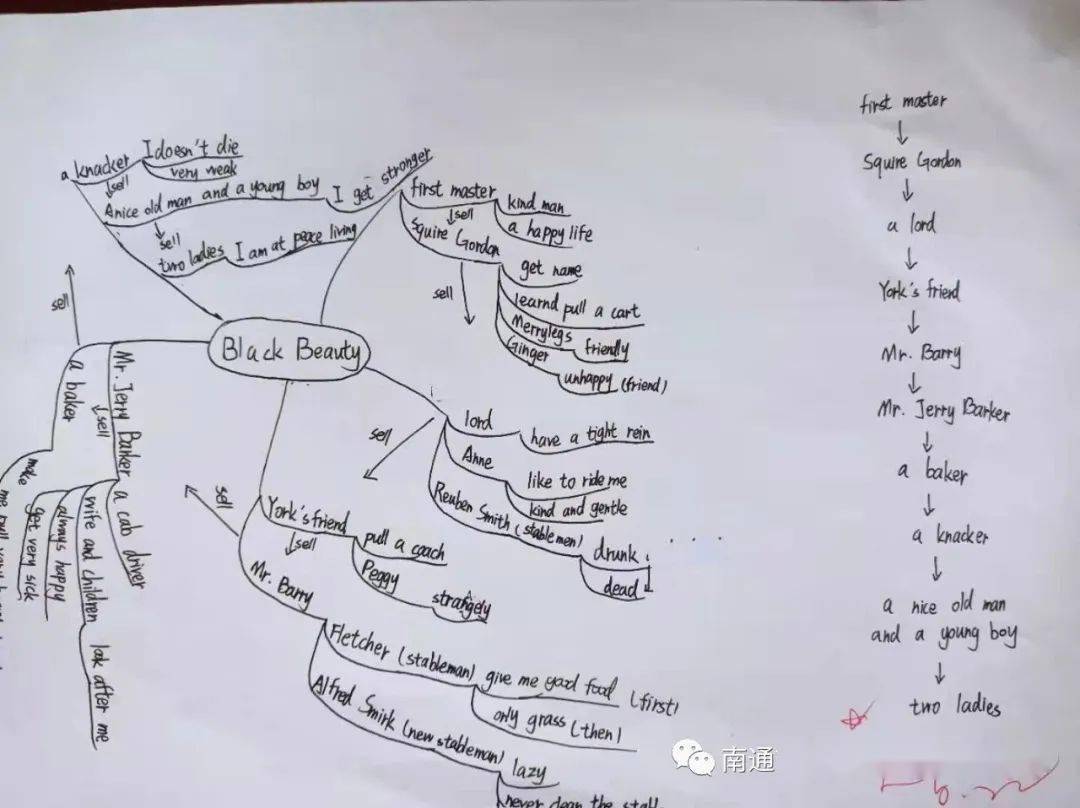 a knacker
I doesn't die
very weak
sell
A nice old man and a young boy
I get stronger
sell
two ladies
I am at peace living
Black Beauty
first master
kind man
a happy life
sell
Squire Gordon
get name
learnd pull a cart
Merrylegs
friendly
Ginger
unhappy (friend)
sell
lord
have a tight rein
Anne
like to ride me
kind and gentle
Reuben Smith (stablemen)
drunk
dead
sell
York's friend
pull a coach
Peggy
strangely
sell
Mr. Barry
Fletcher (stableman)
give me good food (first)
only grass (then)
Alfred Smirk (new stableman)
lazy
never clean the stall
sell
Mr. Jerry Barker
a cab driver
wife and children
look after me
always happy
get very sick
sell
a baker
make
me pull very
sell
first master
Squire Gordon
a lord
York's friend
Mr. Barry
Mr. Jerry Barker
a baker
a knacker
a nice old man
and a young boy
two ladies
南通